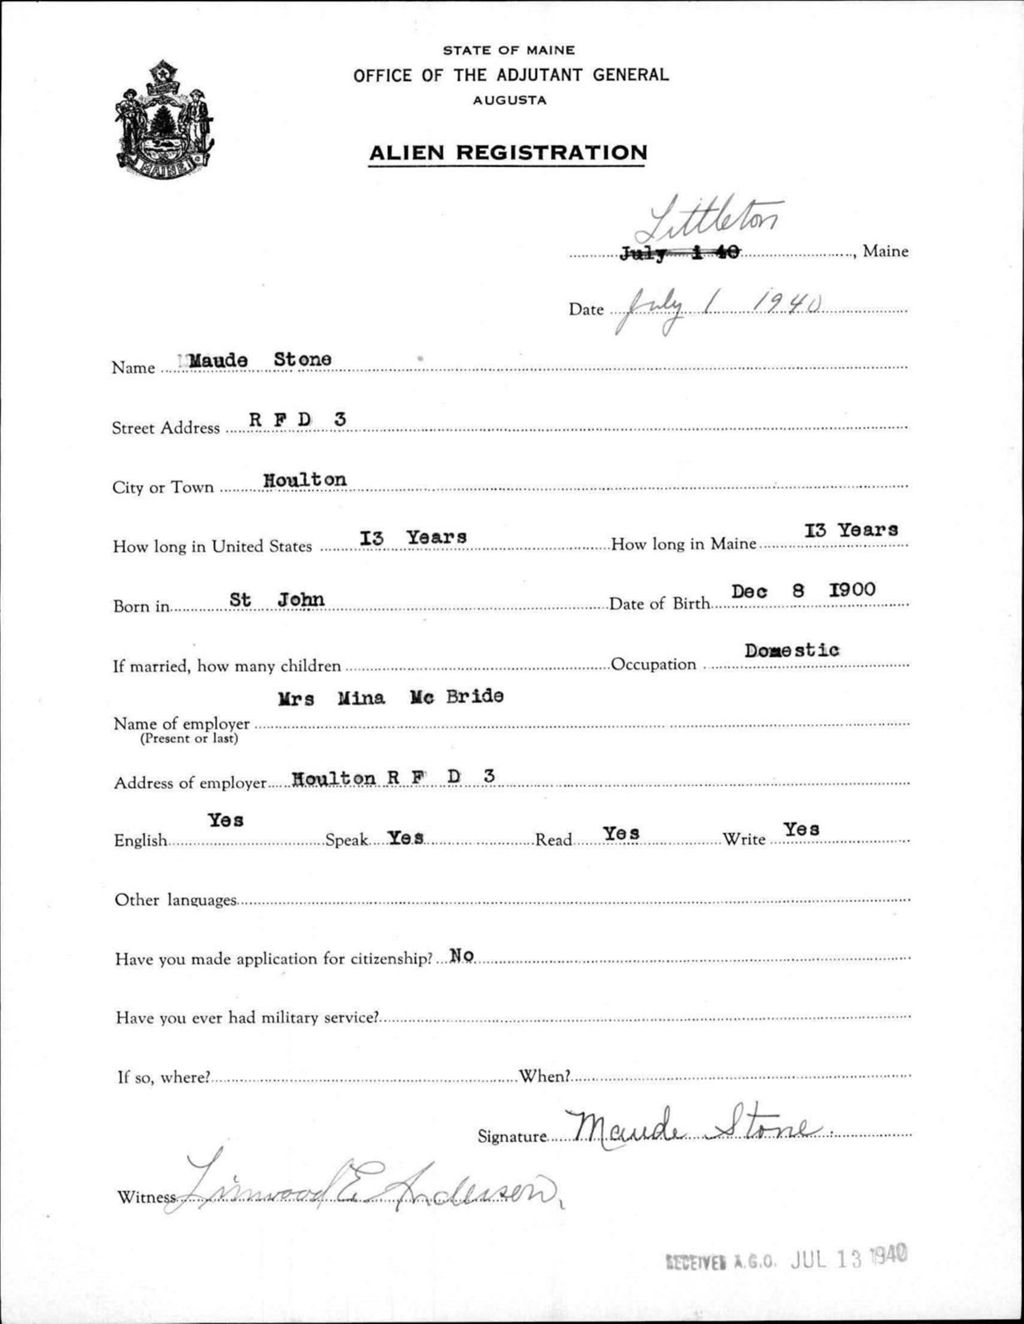 STATE OF MAINE
OFFICE OF THE ADJUTANT GENERAL
AUGUSTA
MAINE
ALIEN REGISTRATION
Littleton
July 1 40, Maine
Date July 1 1940
Name Maude Stone
Street Address R F D 3
City or Town Houlton
How long in United States I3 Years How long in Maine I3 Years
Born in St John Date of Birth Dec 8 I900
If married, how many children Occupation Domestic
Mrs Mina Mc Bride
Name of employer
(Present or last)
Address of employer Houlton R F D 3
English Yes Speak Yes Read Yes Write Yes
Other languages
Have you made application for citizenship? No
Have you ever had military service?
If so, where? When?
Signature Maude Stone.
Witness Linwood E. Anderson,
RECEIVED A.G.O. JUL 13 1940